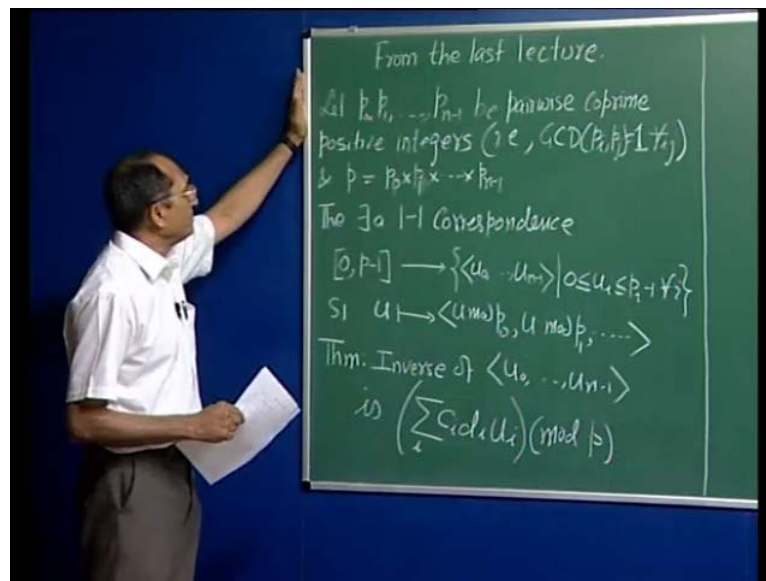 From the last lecture.
Let p₀, p₁, ..., pₙ₋₁ be pairwise coprime
positive integers (ie, GCD(pᵢ,pⱼ)=1 ∀i,j)
& p = p₀×p₁×...×pₙ₋₁
The ∃ a 1-1 Correspondence
[0, p-1] → {<u₀, .., uₙ₋₁> | 0≤uᵢ≤pᵢ-1 ∀i}
St u ↦ <u mod p₀, u mod p₁, .....>
Thm: Inverse of <u₀, .., uₙ₋₁>
is (∑ᵢ cᵢdᵢuᵢ) (mod p)